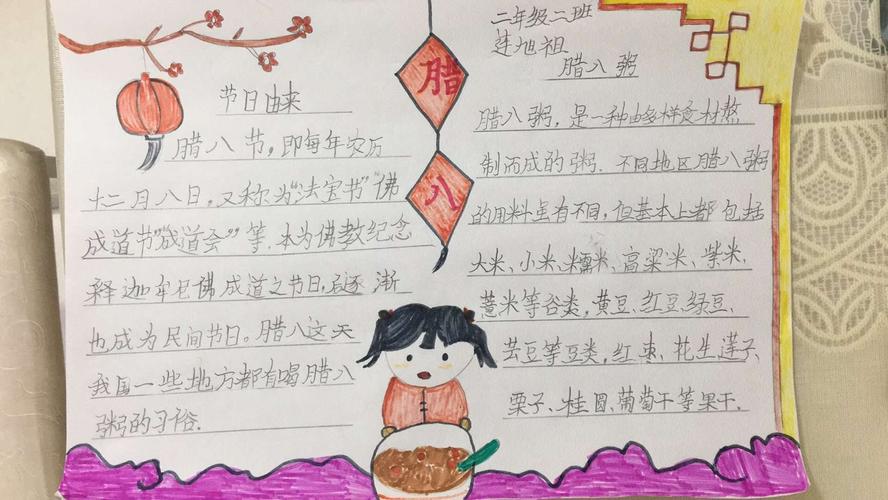 节日由来
腊八节，即每年农历
十二月八日，又称为“法宝书”“佛
成道节”“成道会”等.本为佛教纪念
释迦牟尼佛成道之节日，后逐渐
也成为民间节日。腊八这天
我国一些地方都有喝腊八
粥的习俗.
腊
八
二年级二班
连旭祖
腊八粥
腊八粥，是一种由多样食材熬
制而成的粥.不同地区腊八粥
的用料虽有不同，但基本上都包括
大米、小米、糯米、高粱米、紫米、
薏米等谷类，黄豆、红豆、绿豆、
芸豆等豆类，红枣、花生、莲子、
栗子、桂圆、葡萄干等果干.